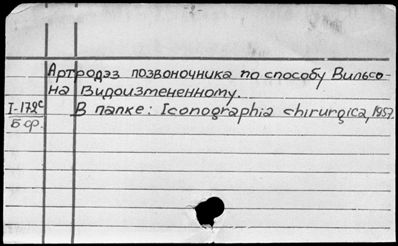 -2-
Артродэз позвоночника по способу Вильсо-
на видоизмененному.
I-172с В папке: Iconographia chirurgica, 1957.
Бф.